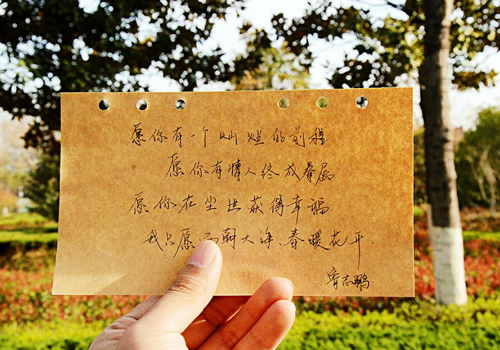 愿你有一个灿烂的前程
愿你有情人终成眷属
愿你在尘世获得幸福.
我只愿面朝大海,春暖花开.
志鹏